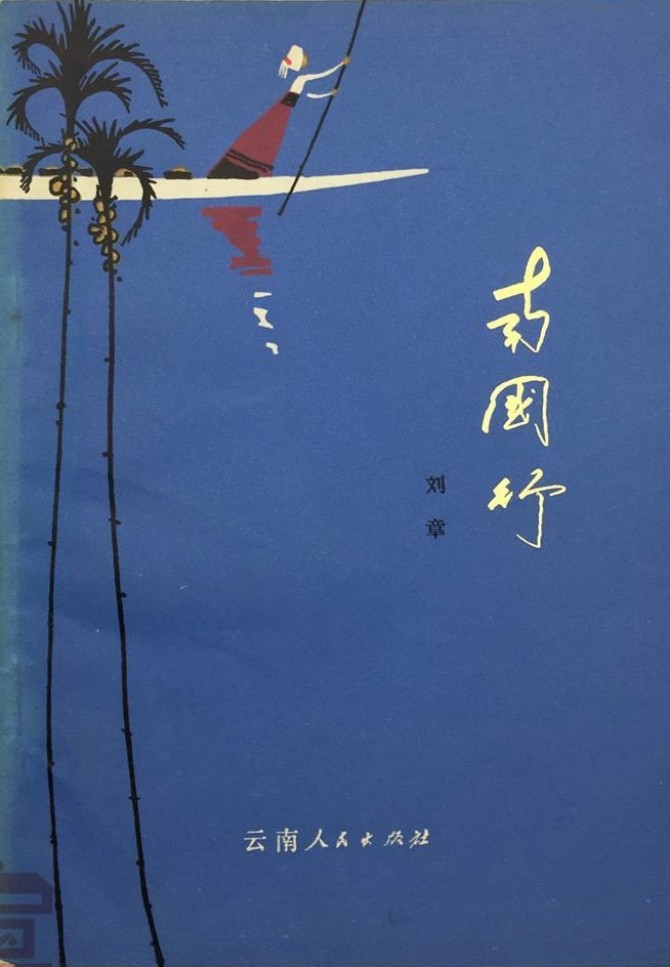 南國行
刘章
云南人民出版社